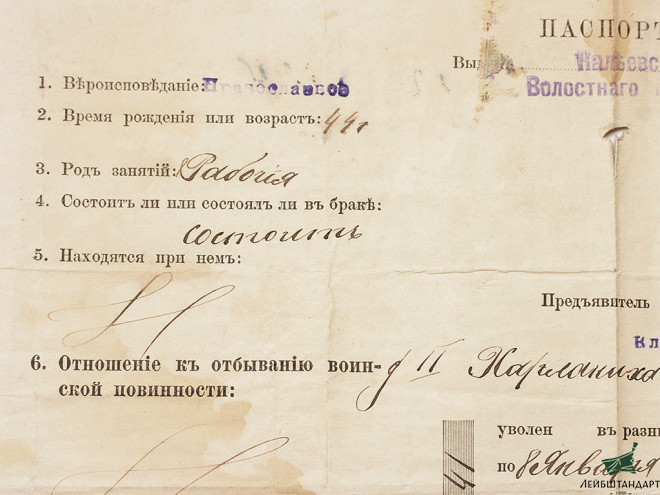 ПАСПОРТ
Выд
Волостнаго
1. Вѣроисповѣданіе: Православное
2. Время рожденія или возрастъ: 44 г
3. Родъ занятій: Рабочія
4. Состоитъ ли или состоялъ ли въ бракѣ:
состоитъ
5. Находятся при немъ:
Предъявитель
6. Отношеніе къ отбыванію воин-
ской повинности:
уволен въ разн
по 8 Января
41
ЛЕЙБШТАНДАРТ
1996